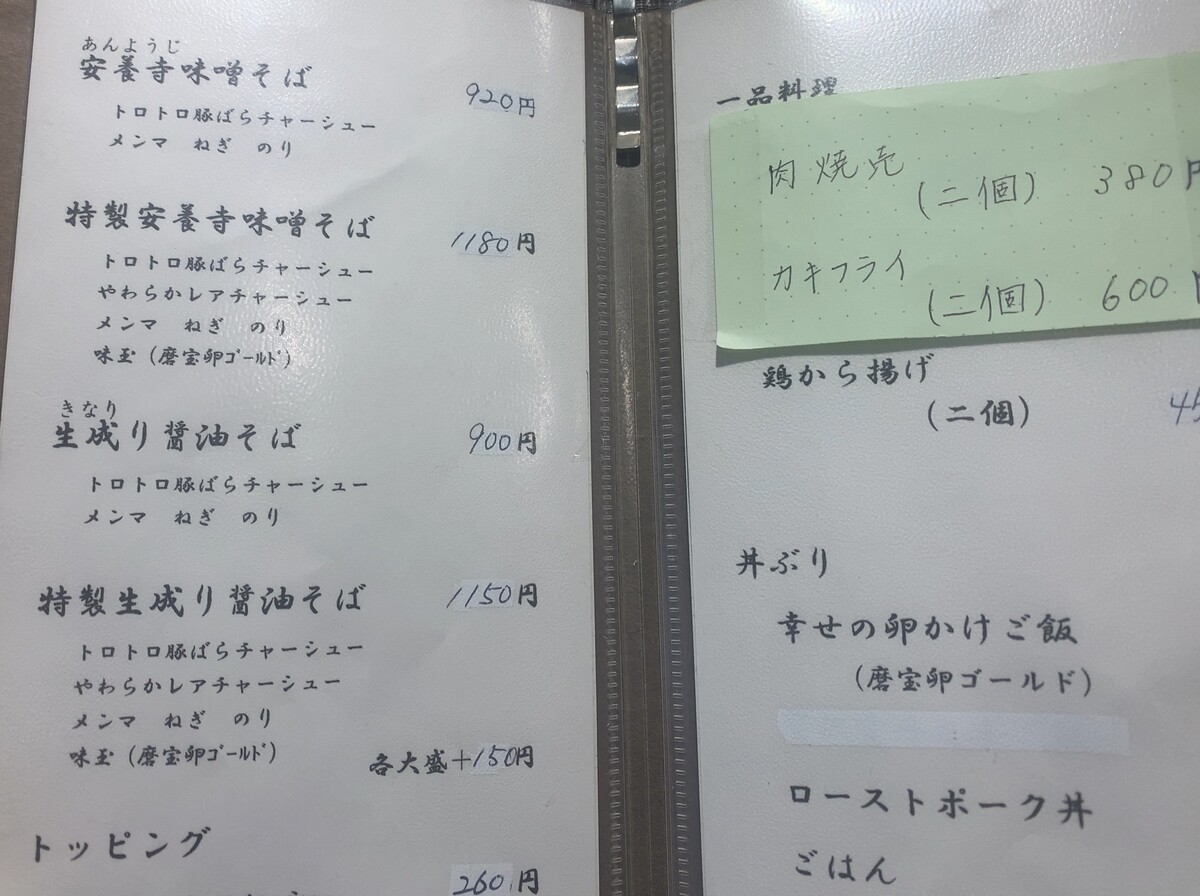 あんようじ
安養寺味噌そば 920円
トロトロ豚ばらチャーシュー
メンマ ねぎ のり
特製安養寺味噌そば 1180円
トロトロ豚ばらチャーシュー
やわらかレアチャーシュー
メンマ ねぎ のり
味玉(磨宝卵ゴールド)
きなり
生成り醤油そば 900円
トロトロ豚ばらチャーシュー
メンマ ねぎ のり
特製生成り醤油そば 1150円
トロトロ豚ばらチャーシュー
やわらかレアチャーシュー
メンマ ねぎ のり
味玉(磨宝卵ゴールド)
各大盛+150円
トッピング
260円
一品料理
肉焼売
(二個) 380円
カキフライ
(二個) 600円
鶏から揚げ
(二個)
丼ぶり
幸せの卵かけご飯
(磨宝卵ゴールド)
ローストポーク丼
ごはん